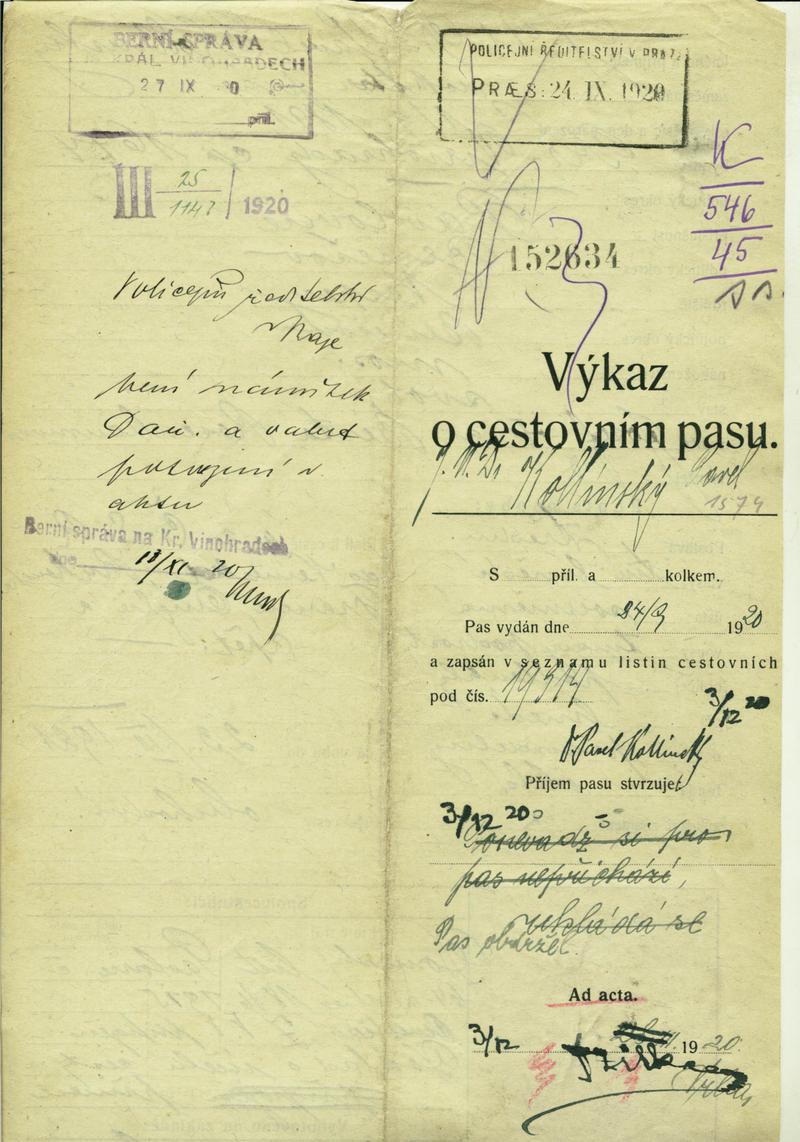 BERNÍ SPRÁVA
KRÁL. VINOHRADECH
27 IX
příl.
III 25/1147 / 1920
Policejní ředitelství
Praze
není námitek
Daň. a
potvrzení v
aktu
Berní správa na Kr. Vinohradech,
dne 13/XI 20
POLICEJNÍ ŘEDITELSTVÍ V PRAZE
PRÆS: 24. IX. 1920
K
546
45
152634
Výkaz
o cestovním pasu.
J.U.Dr Kollinský Pavel
1574
S příl. a kolkem.
Pas vydán dne 24/9 1920
a zapsán v seznamu listin cestovních
pod čís. 19314
3/12 20
Dr Pavel Kollinský
Příjem pasu stvrzuje:
3/12 20
Ponevadž si pro
pas nepřichází,
ukládá se
Pas obdržel.
Ad acta.
3/12 1920